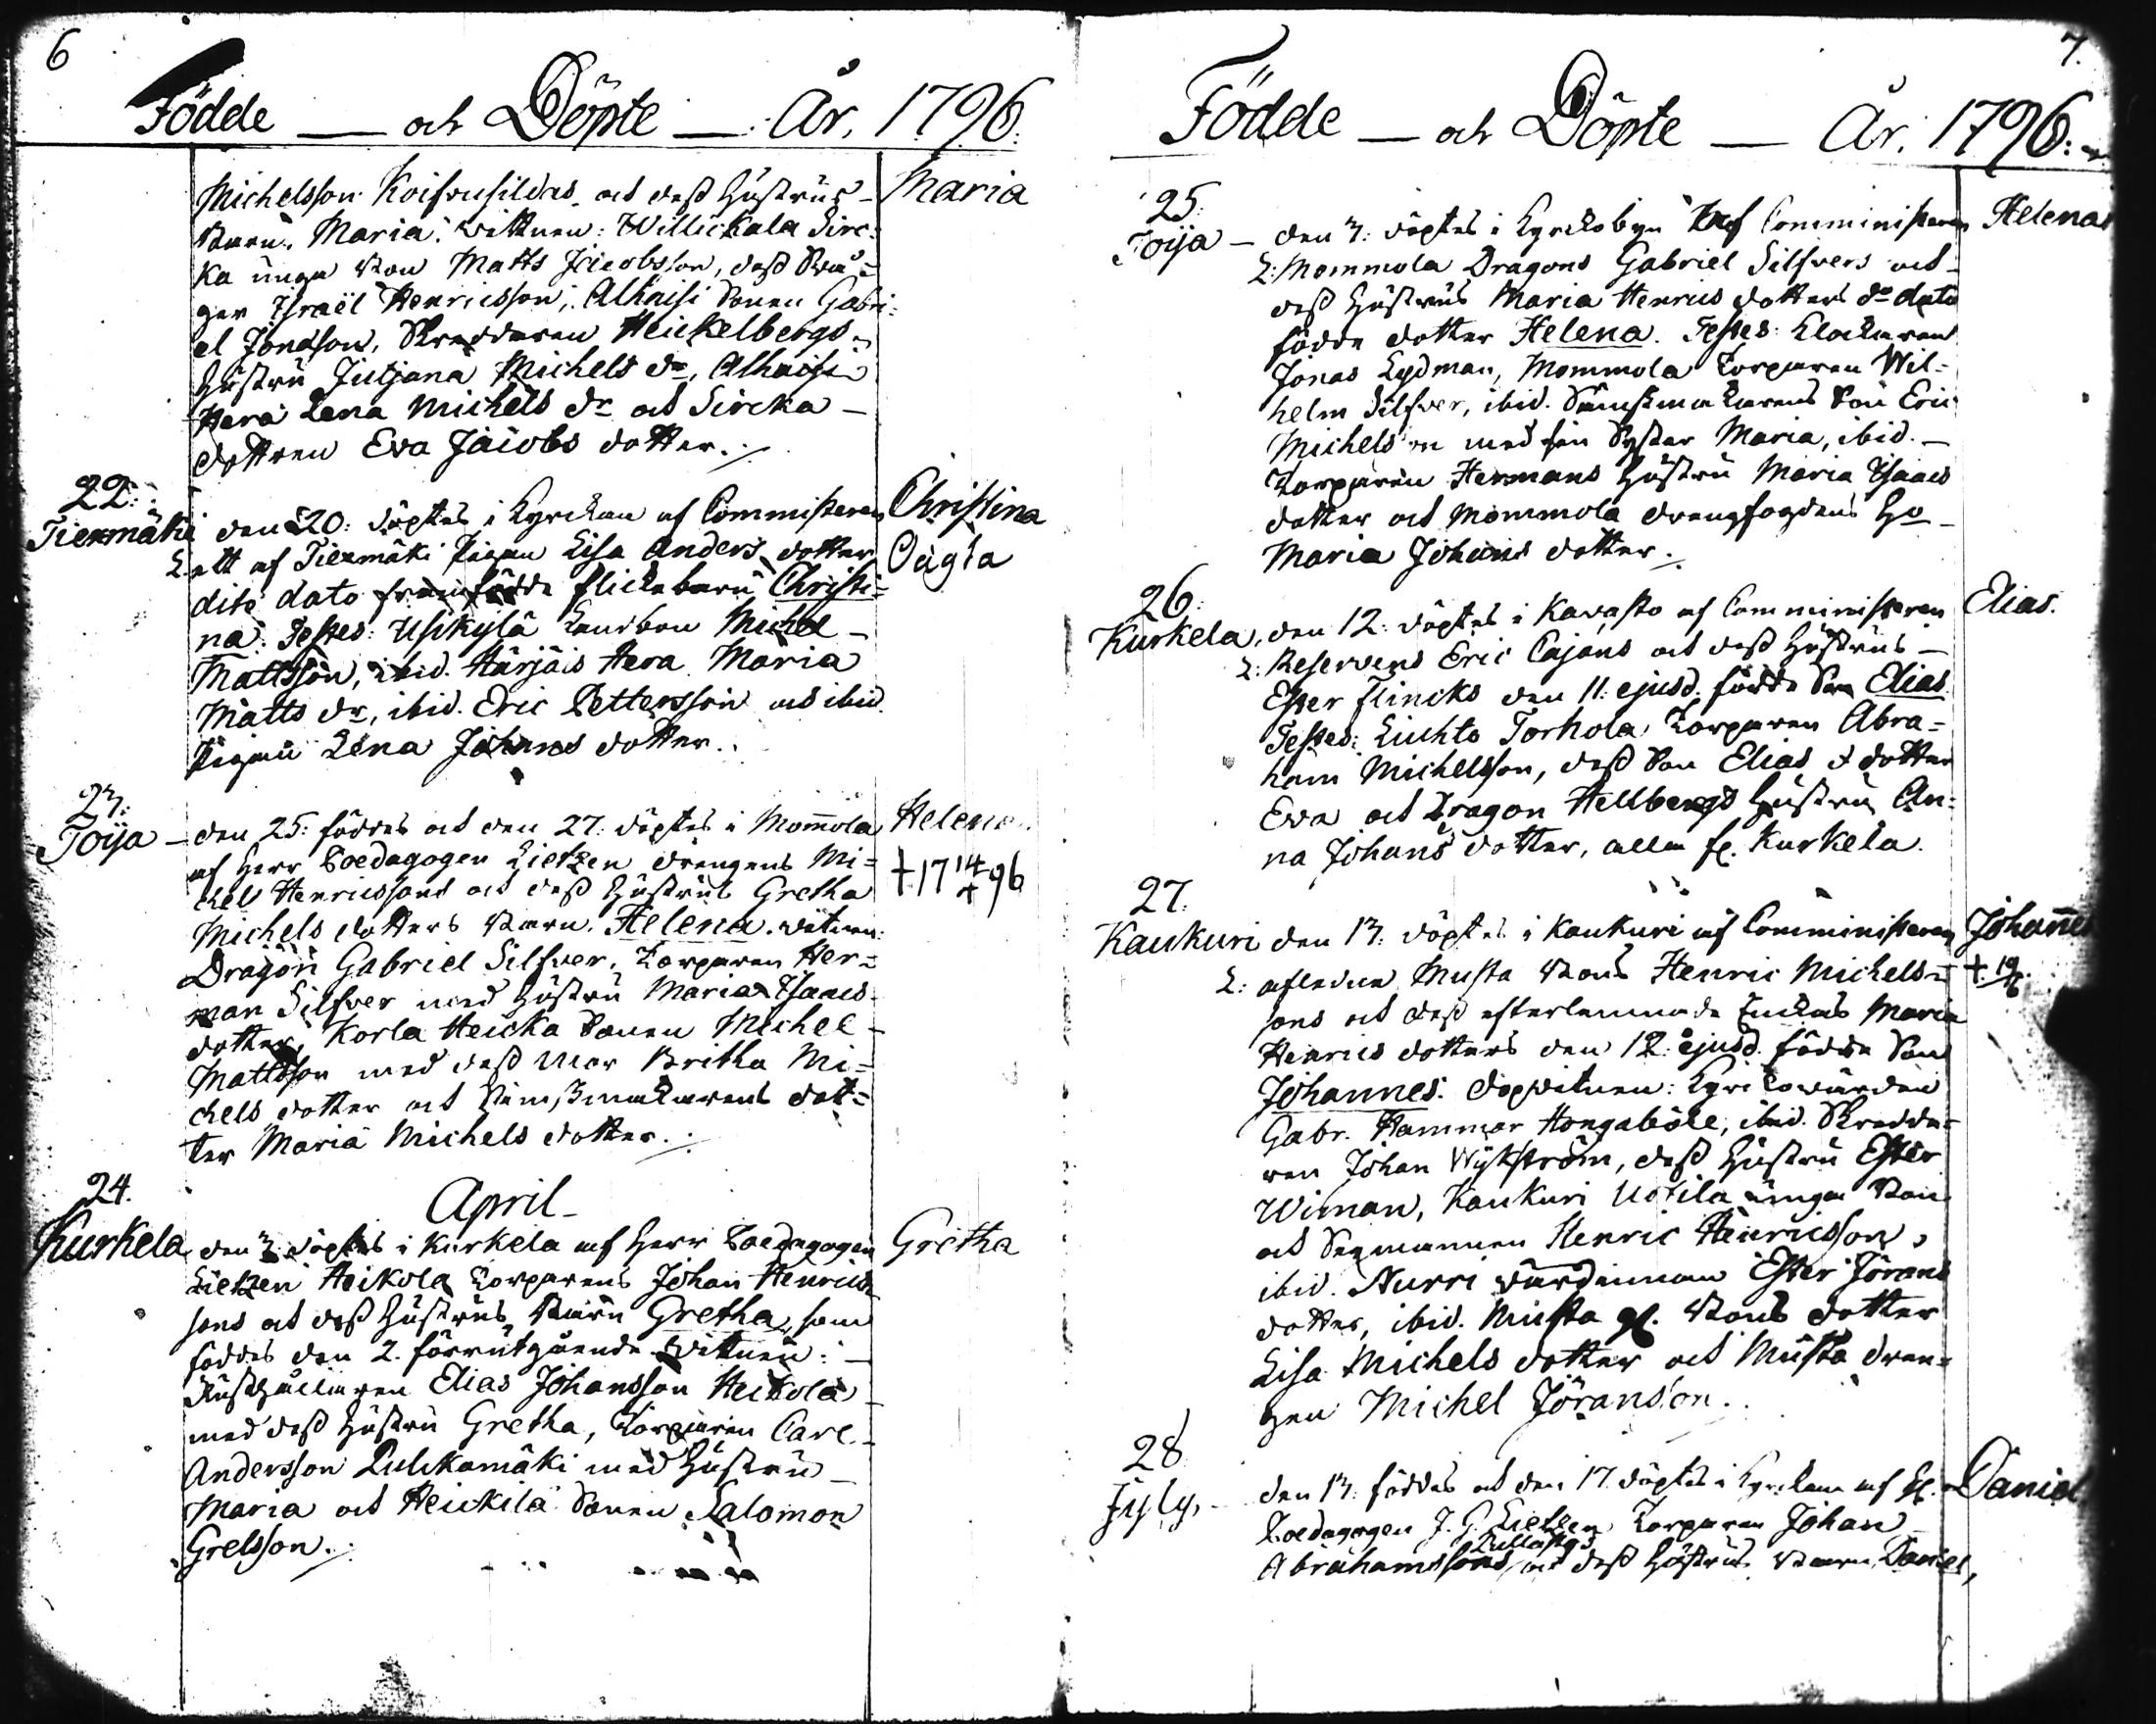 6
Födde — och Döpte — År. 1796.
Michelsson Koisvusildas och dess hustrus Maria
Barn. Maria. Wittnen: Willickala Sirc=
ka unga Bon Matts Jacobsson, dess Svå=
ger Israël Henricsson, Alhaisi Sonen Gabri=
el Jonasson, Skreddaren Heickelbergs
Hustru Juljana Michels dr, Alhaisi
Hera Lena Michels dr och Sircka
dottren Eva Jacobs dotter./.
22.
Tiexmäki den 20. döptes i Kyrckan af Comministeren Christina
L. ett af Tiexmäki Pigan Lisa Anders dotter Oägta
dito dato framfödde flickebarn Christi=
na. Testes: Usikylä Landbon Michel
Mattsson, ibid. Härjäis Hera Maria
Matts dr, ibid. Eric Pettersson och ibid.
Pigan Lena Johans dotter.
23.
Toija — den 25. föddes och den 27. döptes i Mommola Helena
af Herr Paedagogen Lietzen drengens Mi= † 17 14/4 96
chel Henricssons och dess hustrus Gretha
Michels dotters Barn. Helena. witnen:
Dragon Gabriel Silfver, Torparen Her=
man Silfver med hustru Maria Isaacs
dotter, Korla Heicka Sonen Michel
Mattsson med dess Mor Britha Mi=
chels dotter och Sämskmakarens dot=
ter Maria Michels dotter./.
April
24.
Kurkela den 3. döptes i Kurkela af Herr Paedagogen Gretha
Lietzen Heikola Torparens Johan Henrics
sons och dess hustrus Barn Gretha, som
föddes den 2. förrutgående. Wittnen:
Rusthållaren Elias Johansson Heikola
med dess hustru Gretha, Torparen Carl
Andersson Pulckamäki med hustru
Maria och Heickilä Sonen Salomon
Grelsson./.
7.
Födde — och Döpte — År. 1796.
25.
Toija — den 3. döptes i Kyrckobyn af Comministeren Helena
L: Mommola Dragons Gabriel Silfvers och
dess hustrus Maria Henrics dotters do dato
födde dotter Helena. Testes: Klockaren
Jonas Lydman, Mommola Torparen Wil=
helm Silfver, ibid. Sämskmakarens Son Eric
Michelsson med sin Syster Maria, ibid.
Torparen Hermans hustru Maria Isaacs
dotter och Mommola drengfogdens Ho
Maria Johans dotter./.
26.
Kurkela, den 12. döptes i Kavasto af Comministeren Elias.
L: Reservens Eric Cajans och dess hustrus
Ester Flincks den 11. ejusd. födde Son Elias.
Testes: Luchto Torhola Torparen Abra=
ham Michelsson, dess Son Elias & dotter
Eva och Dragon Hellbergs hustru An=
na Johans dotter, alla fr. Kurkela.
27.
Kaukuri den 13. döptes i Kaukuri af Comministeren Johannes
L: afledne Musta Bons Henric Michels= † 19/
sons och dess efterlemnade Enckas Maria
Henrics dotters den 12. ejusd. födde Son
Johannes. dopvitnen: Kyrckovärden
Gabr. Hammar Hongaböle, ibid. Skredda=
ren Johan Wikström, dess hustru Ester
Wiman, Kaukuri Uotila unga Bon
och Sexmannen Henric Henricsson,
ibid. Nurri värdinnan Ester Jörans
dotter, ibid. Musta gl. Bons dotter
Lisa Michels dotter och Musta dren=
gen Michel Jöransson.
28
Jyly, — den 13. föddes och den 17. döptes i Kyrckan af Hr. Daniel
Paedagogen J. G. Lietzen Torparen Johan
Abrahamssons och dess hustrus Barn Daniel,